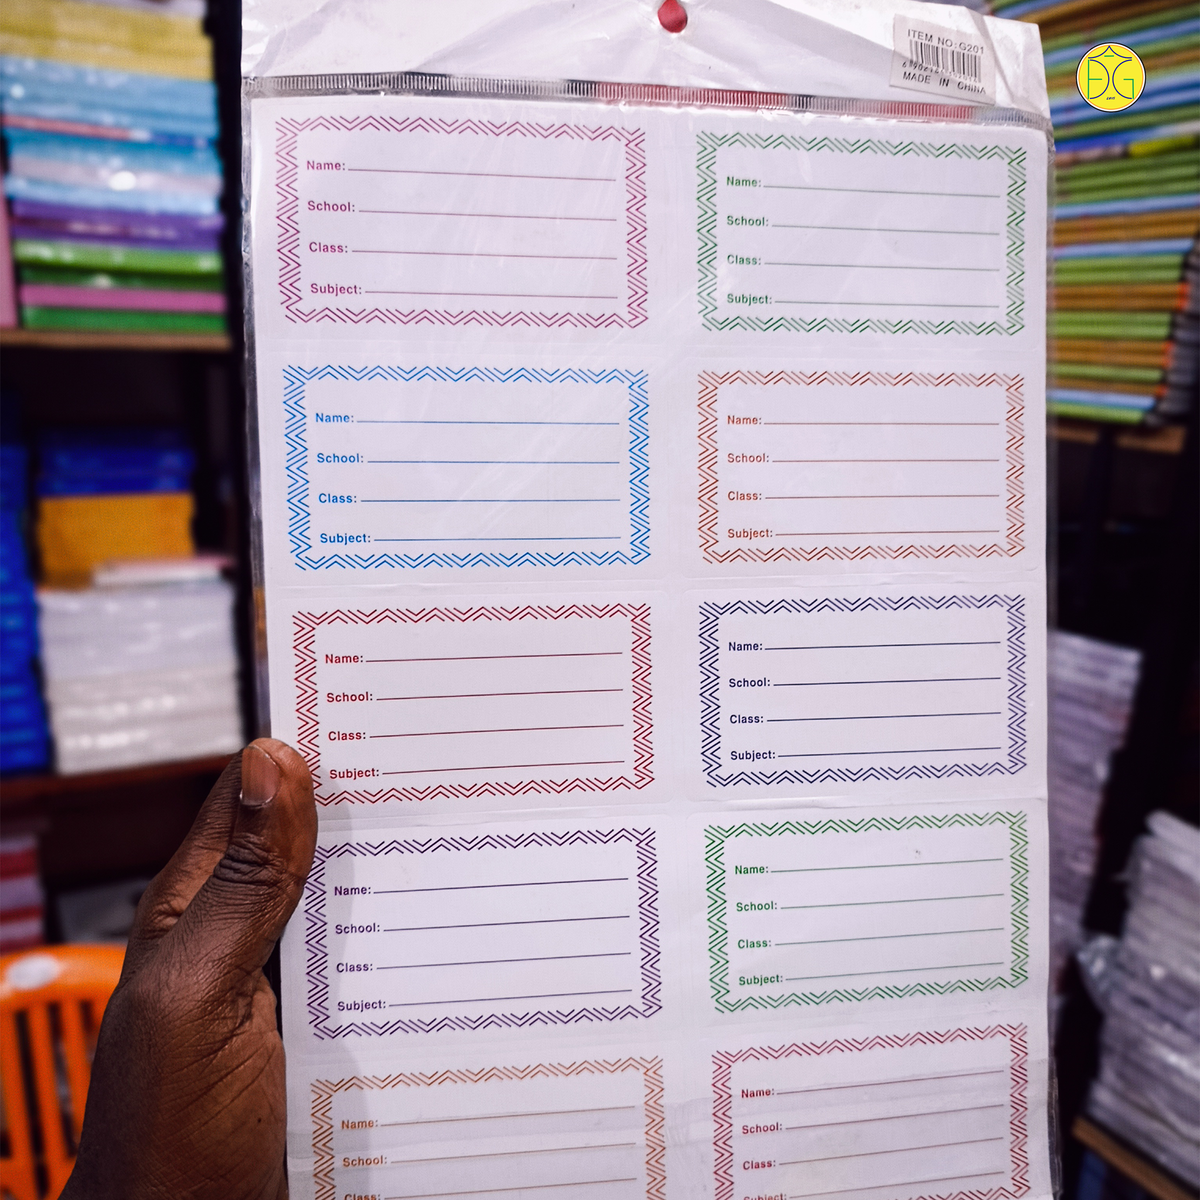 ITEM NO:G201
MADE IN CHINA
Name:
School:
Class:
Subject:
Name:
School:
Class:
Subject:
Name:
School:
Class:
Subject:
Name:
School:
Class:
Subject:
Name:
School:
Class:
Subject:
Name:
School:
Class:
Subject:
Name:
School:
Class:
Subject:
Name:
School:
Class:
Subject:
Name:
School:
Class:
Name:
School:
Class:
Subject: